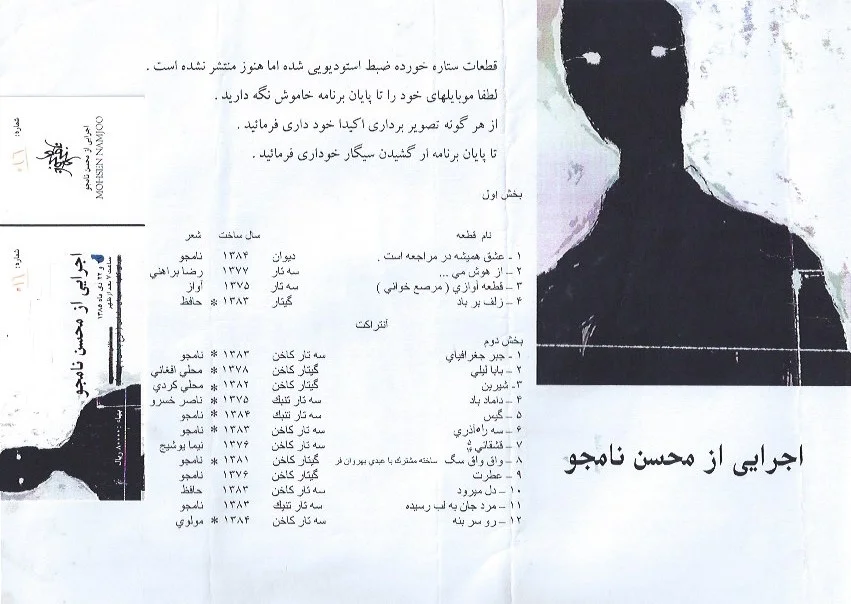 قطعات ستاره خورده ضبط استودیویی شده اما هنوز منتشر نشده است .
لطفا موبایلهای خود را تا پایان برنامه خاموش نگه دارید .
از هر گونه تصویر برداری اکیدا خود داری فرمائید .
تا پایان برنامه از گشیدن سیگار خوداری فرمائید .
بخش اول
نام قطعه سال ساخت شعر
۱ - عشق همیشه در مراجعه است . دیوان ۱۳۸۴ نامجو
۲ – از هوش می ... سه تار ۱۳۷۷ رضا براهني
۳ – قطعه آوازي ( مرصع خواني ) سه تار ۱۳۷۵ آواز
۴ – زلف بر باد گیتار ۱۳۸۳ * حافظ
آنتراکت
بخش دوم
۱ - جبر جغرافیاي سه تار کاخن ۱۳۸۳ * نامجو
۲ – بابا لیلي گیتار کاخن ۱۳۷۸ * محلي افغاني
۳- شیرین گیتار کاخن ۱۳۸۲ * محلي کردي
۴ – داماد باد سه تار تنبك ۱۳۷۵ * ناصر خسرو
۵ – گیس سه تار تنبك ۱۳۸۴ * نامجو
۶ – سه راه آذري گیتار کاخن ۱۳۸۳ * نامجو
۷ – قشقائي سه تار کاخن ۱۳۷۶ نیما یوشیج
۸ – واق واق سگ ساخته مشترك با عبدي بهروان فر گیتار کاخن ۱۳۸۱ * نامجو
۹ – عطرت گیتار کاخن ۱۳۷۶ نامجو
۱۰ – دل میرود سه تار کاخن ۱۳۸۳ حافظ
۱۱ – مرد جان به لب رسیده سه تار تنبك ۱۳۸۳ نامجو
۱۲ – رو سر بنه سه تار کاخن ۱۳۸۴ * مولوي
اجرایی از محسن نامجو
شماره:
اجرایی از محسن نامجو
MOHSEN NAMJOO
شماره:
اجرایی از محسن نامجو
و ۲۲ دی ماه ۱۳۸۵
ساعت ۷ بعد از ظهر
بهاء : ۸۰۰۰۰ ریال